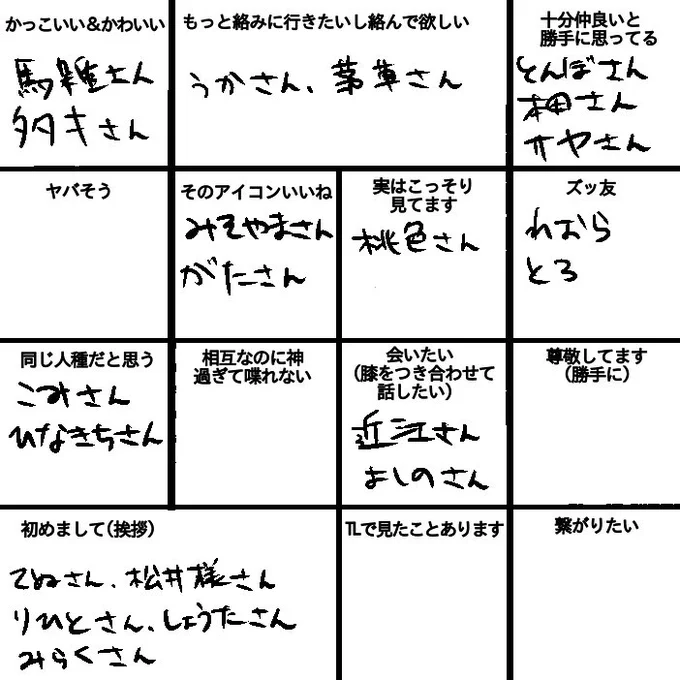 かっこいい&かわいい
馬雑さん
タタキさん
もっと絡みに行きたいし絡んで欲しい
うかさん、茅草さん
十分仲良いと
勝手に思ってる
とんぼさん
さん
オヤさん
ヤバそう
そのアイコンいいね
みそやまさん
がたさん
実はこっそり
見てます
桃色さん
ズッ友
れおら
とろ
同じ人種だと思う
こみさん
ひなきちさん
相互なのに神
過ぎて喋れない
会いたい
(膝をつき合わせて
話したい)
近江さん
よしのさん
尊敬してます
(勝手に)
初めまして(挨拶)
てぬさん、松井様さん
りひとさん、しょうたさん
みらくさん
TLで見たことあります
繋がりたい